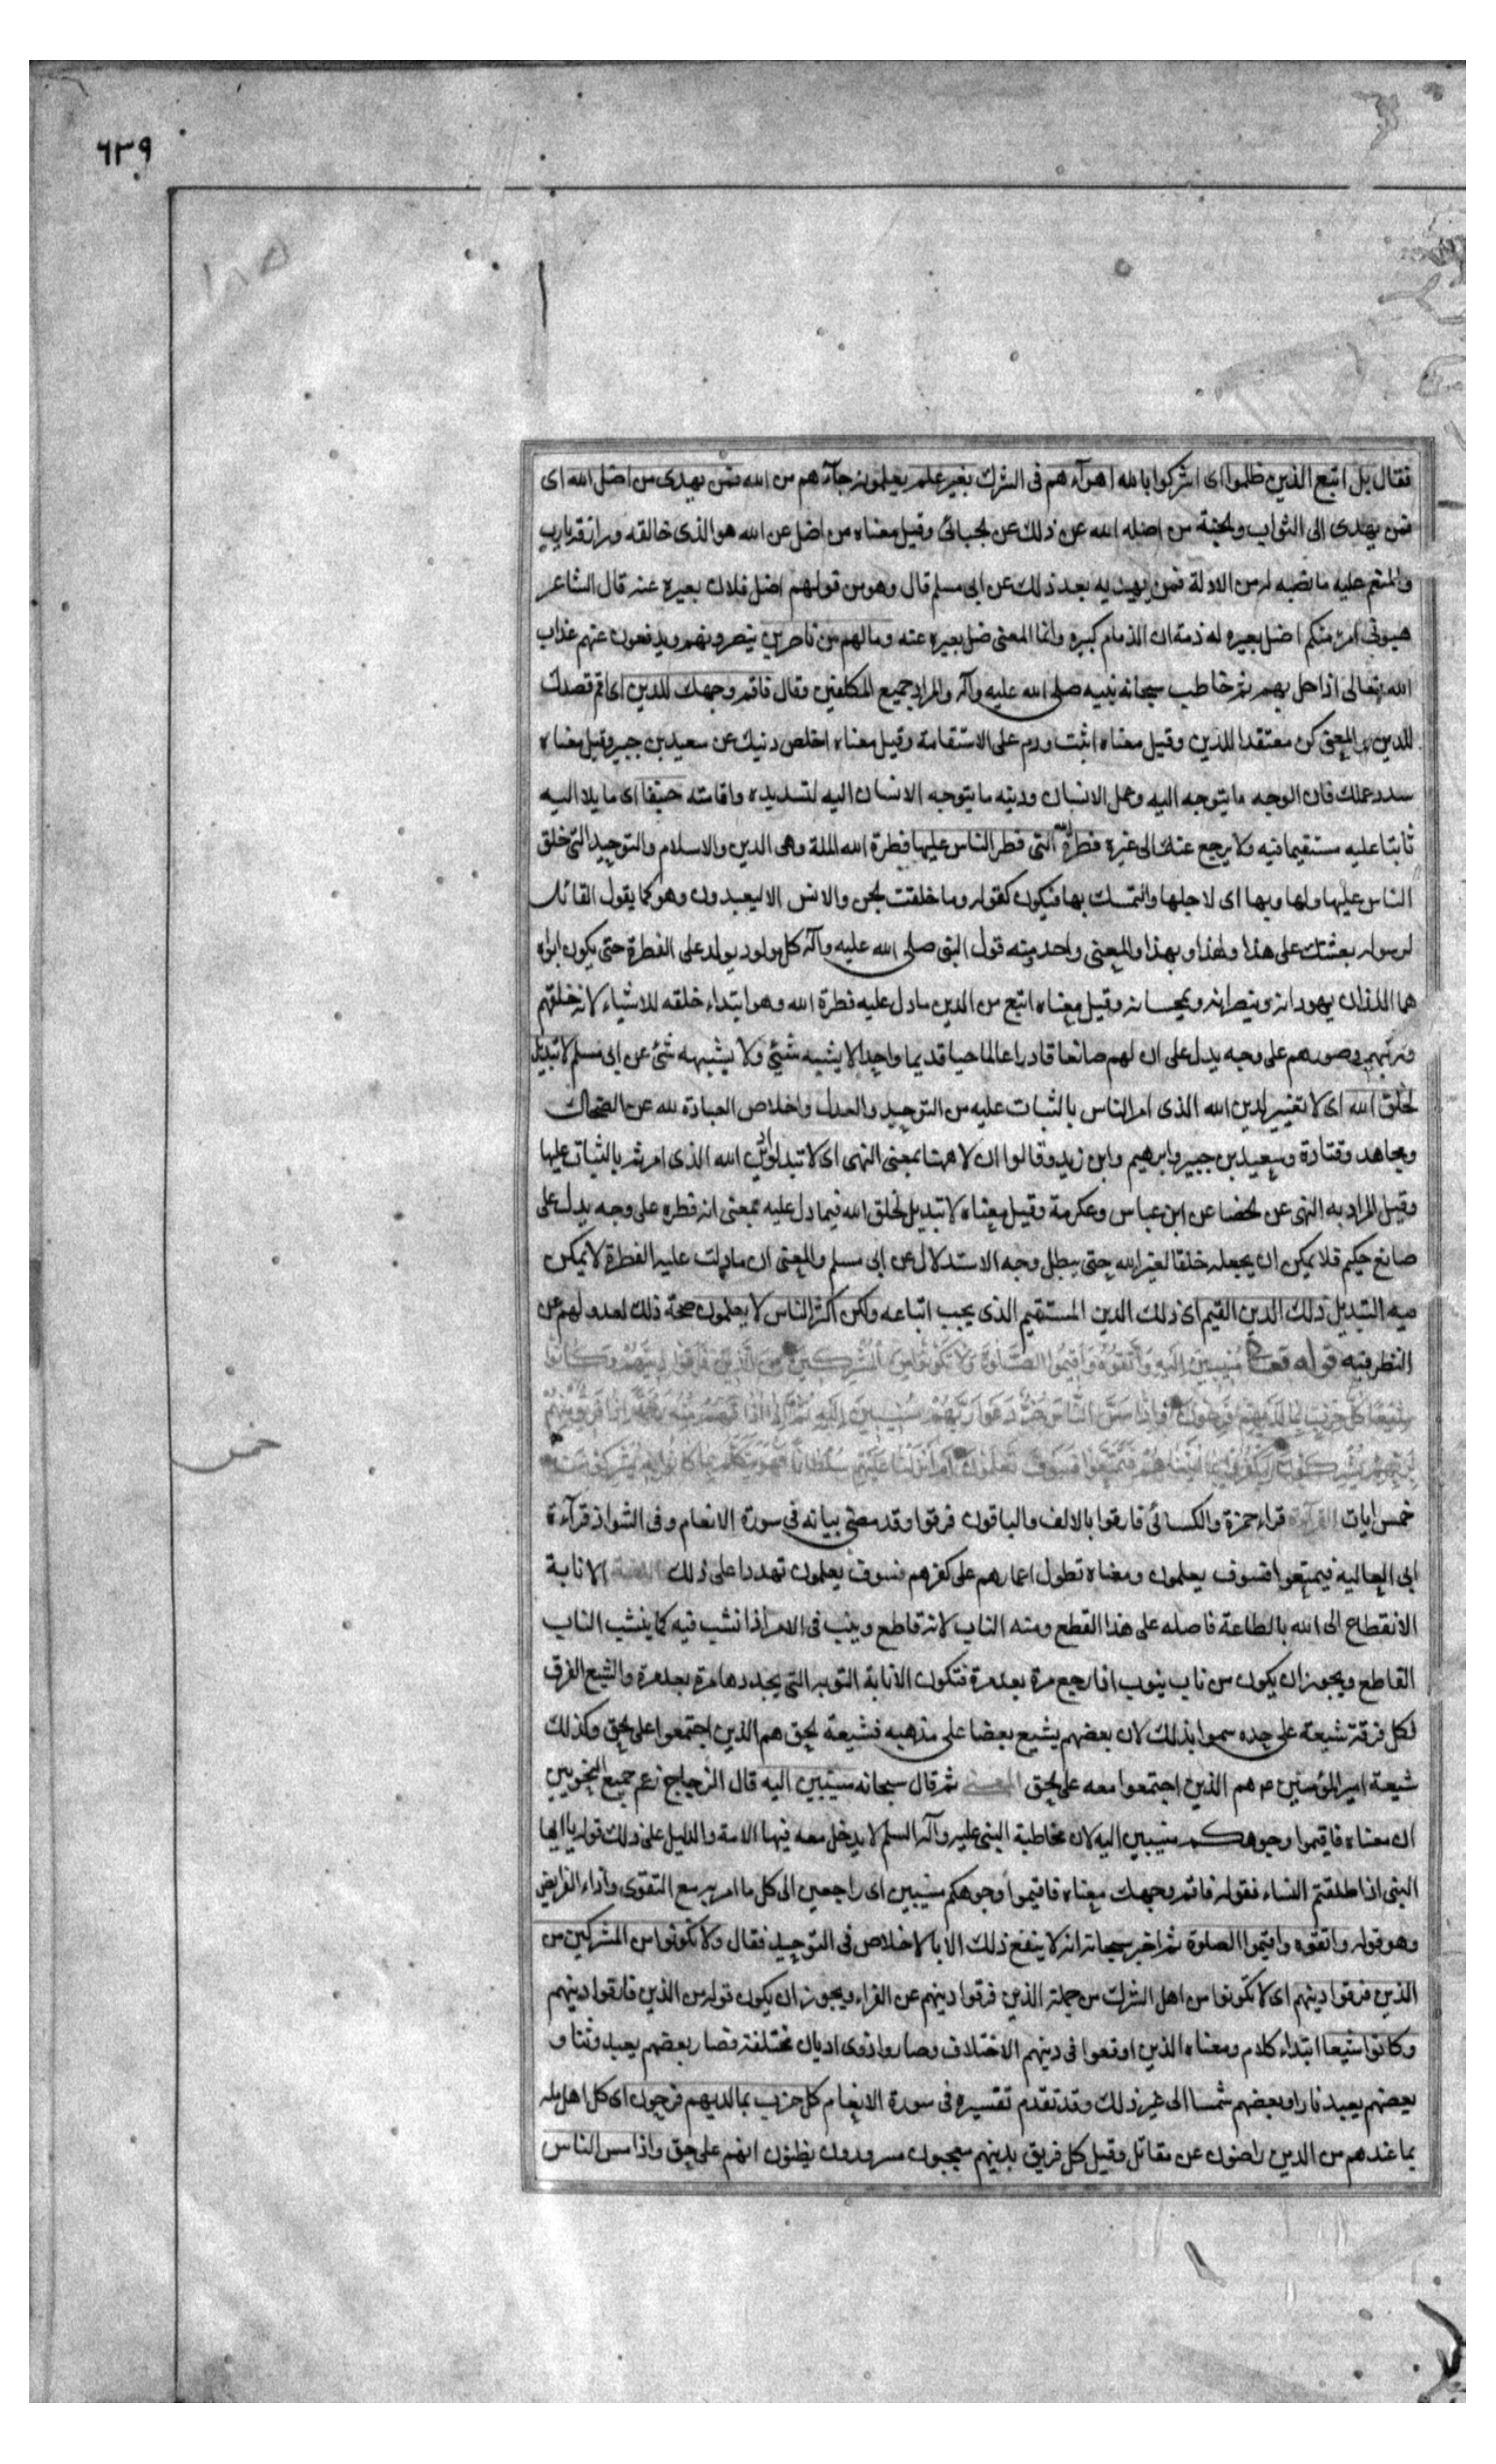 ٦٣٩
فقال بل اتبع الذين ظلموا اى اشركوا بالله اهوآءهم فى الشرك بغير علم يعلمونه جآءهم من الله فمن يهدى من اضل الله اى
فمن يهدى الى الثواب والجنة من اضله الله عن ذلك عن الجبائى وقيل معناه من اضل عن الله هو الذى خالقه ورازقه
والمنعم عليه ما نصبه له من الادلة فمن يهديه بعد ذلك عن ابى مسلم قال وهو من قولهم اضل فلان بعيره عنه قال الشاعر
هبونى امرء منكم اضل بعيره له ذمة ان الذمام كبيره وانما المعنى ضل بعيره عنه وما لهم من ناصرين ينصرونهم ويدفعون عنهم عذاب
الله تعالى اذا حل بهم ثم خاطب سبحانه نبيه صلى الله عليه وآله والمراد جميع المكلفين وقال فاقم وجهك للدين اى اقم قصدك
للدين والمعنى كن معتقدا للدين وقيل معناه اثبت ودم على الاستقامة وقيل معناه اخلص دنيك عن سعيد بن جبير وقيل معناه
سدد عملك فان الوجه ما يتوجه اليه وعمل الانسان ودينه ما يتوجه الانسان اليه لتسديده واقامته حنيفا اى مايلا اليه
ثابتا عليه مستقيما فيه ولا يرجع عنك الى غيره فطرة الله التى فطر الناس عليها فطرة الله الملة وهى الدين والاسلام والتوحيد التى خلق
الناس عليها ولها وبها اى لاجلها والتمسك بها فيكون كقوله وما خلقت الجن والانس الا ليعبدون وهو كما يقول القائل
لرسوله بعثتك على هذا ولهذا وبهذا والمعنى واحد ومنه قول النبى صلى الله عليه وآله كل مولود يولد على الفطرة حتى يكون ابواه
هما اللذان يهودانه وينصرانه ويمجسانه وقيل معناه اتبع من الدين ما دل عليه فطرة الله وهو ابتداء خلقه للاشياء لانه خلقهم
وركبهم وصورهم على وجه يدل على ان لهم صانعا قادرا عالما حيا قديما واحدا لا يشبه شئ ولا يشبهه شئ عن ابى مسلم لا تبديل
لخلق الله اى لا تغيير لدين الله الذى امر الناس بالثبات عليه من التوحيد والعدل واخلاص العبادة لله عن الضحاك
ومجاهد وقتادة وسعيد بن جبير وابرهيم وابن زيد وقالوا ان لا ههنا بمعنى النهى اى لا تبدلوا دين الله الذى امرتم بالثبات عليها
وقيل المراد به النهى عن الخصا عن ابن عباس وعكرمة وقيل معناه لا تبديل لخلق الله فيما دل عليه بمعنى انه فطره على وجه يدل على
صانع حكيم فلا يمكن ان يجعله خلقا لغير الله حتى يبطل وجه الاستدلال عن ابى مسلم والمعنى ان ما دلت عليه الفطرة لا يمكن
فيه التبديل ذلك الدين القيم اى ذلك الدين المستقيم الذى يجب اتباعه ولكن اكثر الناس لا يعلمون صحة ذلك لعدولهم عن
النظر فيه قوله تعالى منيبين اليه واتقوه واقيموا الصلوة ولا تكونوا من المشركين من الذين فارقوا دينهم وكانوا
شيعا كل حزب بما لديهم فرحون واذا مس الناس ضر دعوا ربهم منيبين اليه ثم اذا اذاقهم منه رحمة اذا فريق منهم
بربهم يشركون ليكفروا بما اتيناهم فتمتعوا فسوف تعلمون ام انزلنا عليهم سلطانا فهو يتكلم بما كانوا به يشركون
خمس
خمس ايات القرآءة قراء حمزة والكسائى فارقوا بالالف والباقون فرقوا وقد مضى بيانه فى سورة الانعام وفى الشواذ قرآءة
ابى العالية فيمتعوا فسوف يعلمون ومعناه تطول اعمارهم على كفرهم فسوف يعلمون تهددا على ذلك اللغة الانابة
الانقطاع الى الله بالطاعة فاصله على هذا القطع ومنه الناب لانه قاطع وينيب فى الامر اذا نشب فيه كما ينشب الناب
القاطع ويجوز ان يكون من ناب ينوب اذا رجع مرة بعد مرة فتكون الانابة التوبه التى يجددها مرة بعد مرة والشيع الفرق
لكل فرقة شيعة على حده سموا بذلك لان بعضهم يشيع بعضا على مذهبه فشيعة الحق هم الذين اجتمعوا على الحق وكذلك
شيعة امير المؤمنين ع هم الذين اجتمعوا معه على الحق المعنى ثم قال سبحانه منيبين اليه قال الزجاج زعم جميع النحويين
ان معناه فاقيموا وجوهكم منيبين اليه لان مخاطبة النبى عليه وآله السلم لا يدخل معه فيها الامة والدليل على ذلك قوله يا ايها
النبى اذا طلقتم النساء فقوله فاقم وجهك معناه فاقيموا وجوهكم منيبين اى راجعين الى كل ما امر به مع التقوى واداء الفرايض
وهو قوله واتقوه واقيموا الصلوة ثم اخبر سبحانه انه لا ينفع ذلك الا بالاخلاص فى التوحيد فقال ولا تكونوا من المشركين من
الذين فرقوا دينهم اى لا تكونوا من اهل الشرك من جملة الذين فرقوا دينهم عن الفراء ويجوز ان يكون قوله من الذين فارقوا دينهم
وكانوا شيعا ابتداء كلام ومعناه الذين اوقعوا فى دينهم الاختلاف وصاروا ذوى اديان مختلفة فصار بعضهم يعبد وثنا و
بعضهم يعبد نارا وبعضهم شمسا الى غير ذلك وقد تقدم تفسيره فى سورة الانعام كل حزب بما لديهم فرحون اى كل اهل ملة
بما عندهم من الدين راضون عن مقاتل وقيل كل فريق بدينهم معجبون مسرورون يظنون انهم على حق واذا مس الناس